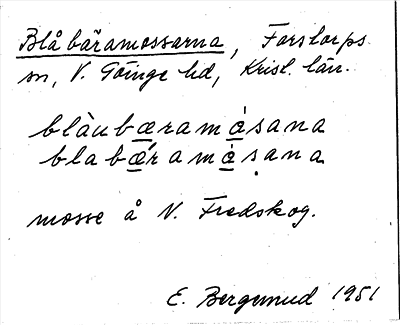 Blåbäramossarna, Farstorps
sn, V. Göinge hd, Krisl. län.
blàubæramȯ́sana
blabǽramȯ́ṣana
mosse å V. Fredskog.
E. Bergemud 1951